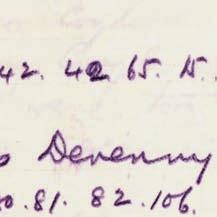 42. 42 65. 15.
Devenny
0. 81. 82. 106.